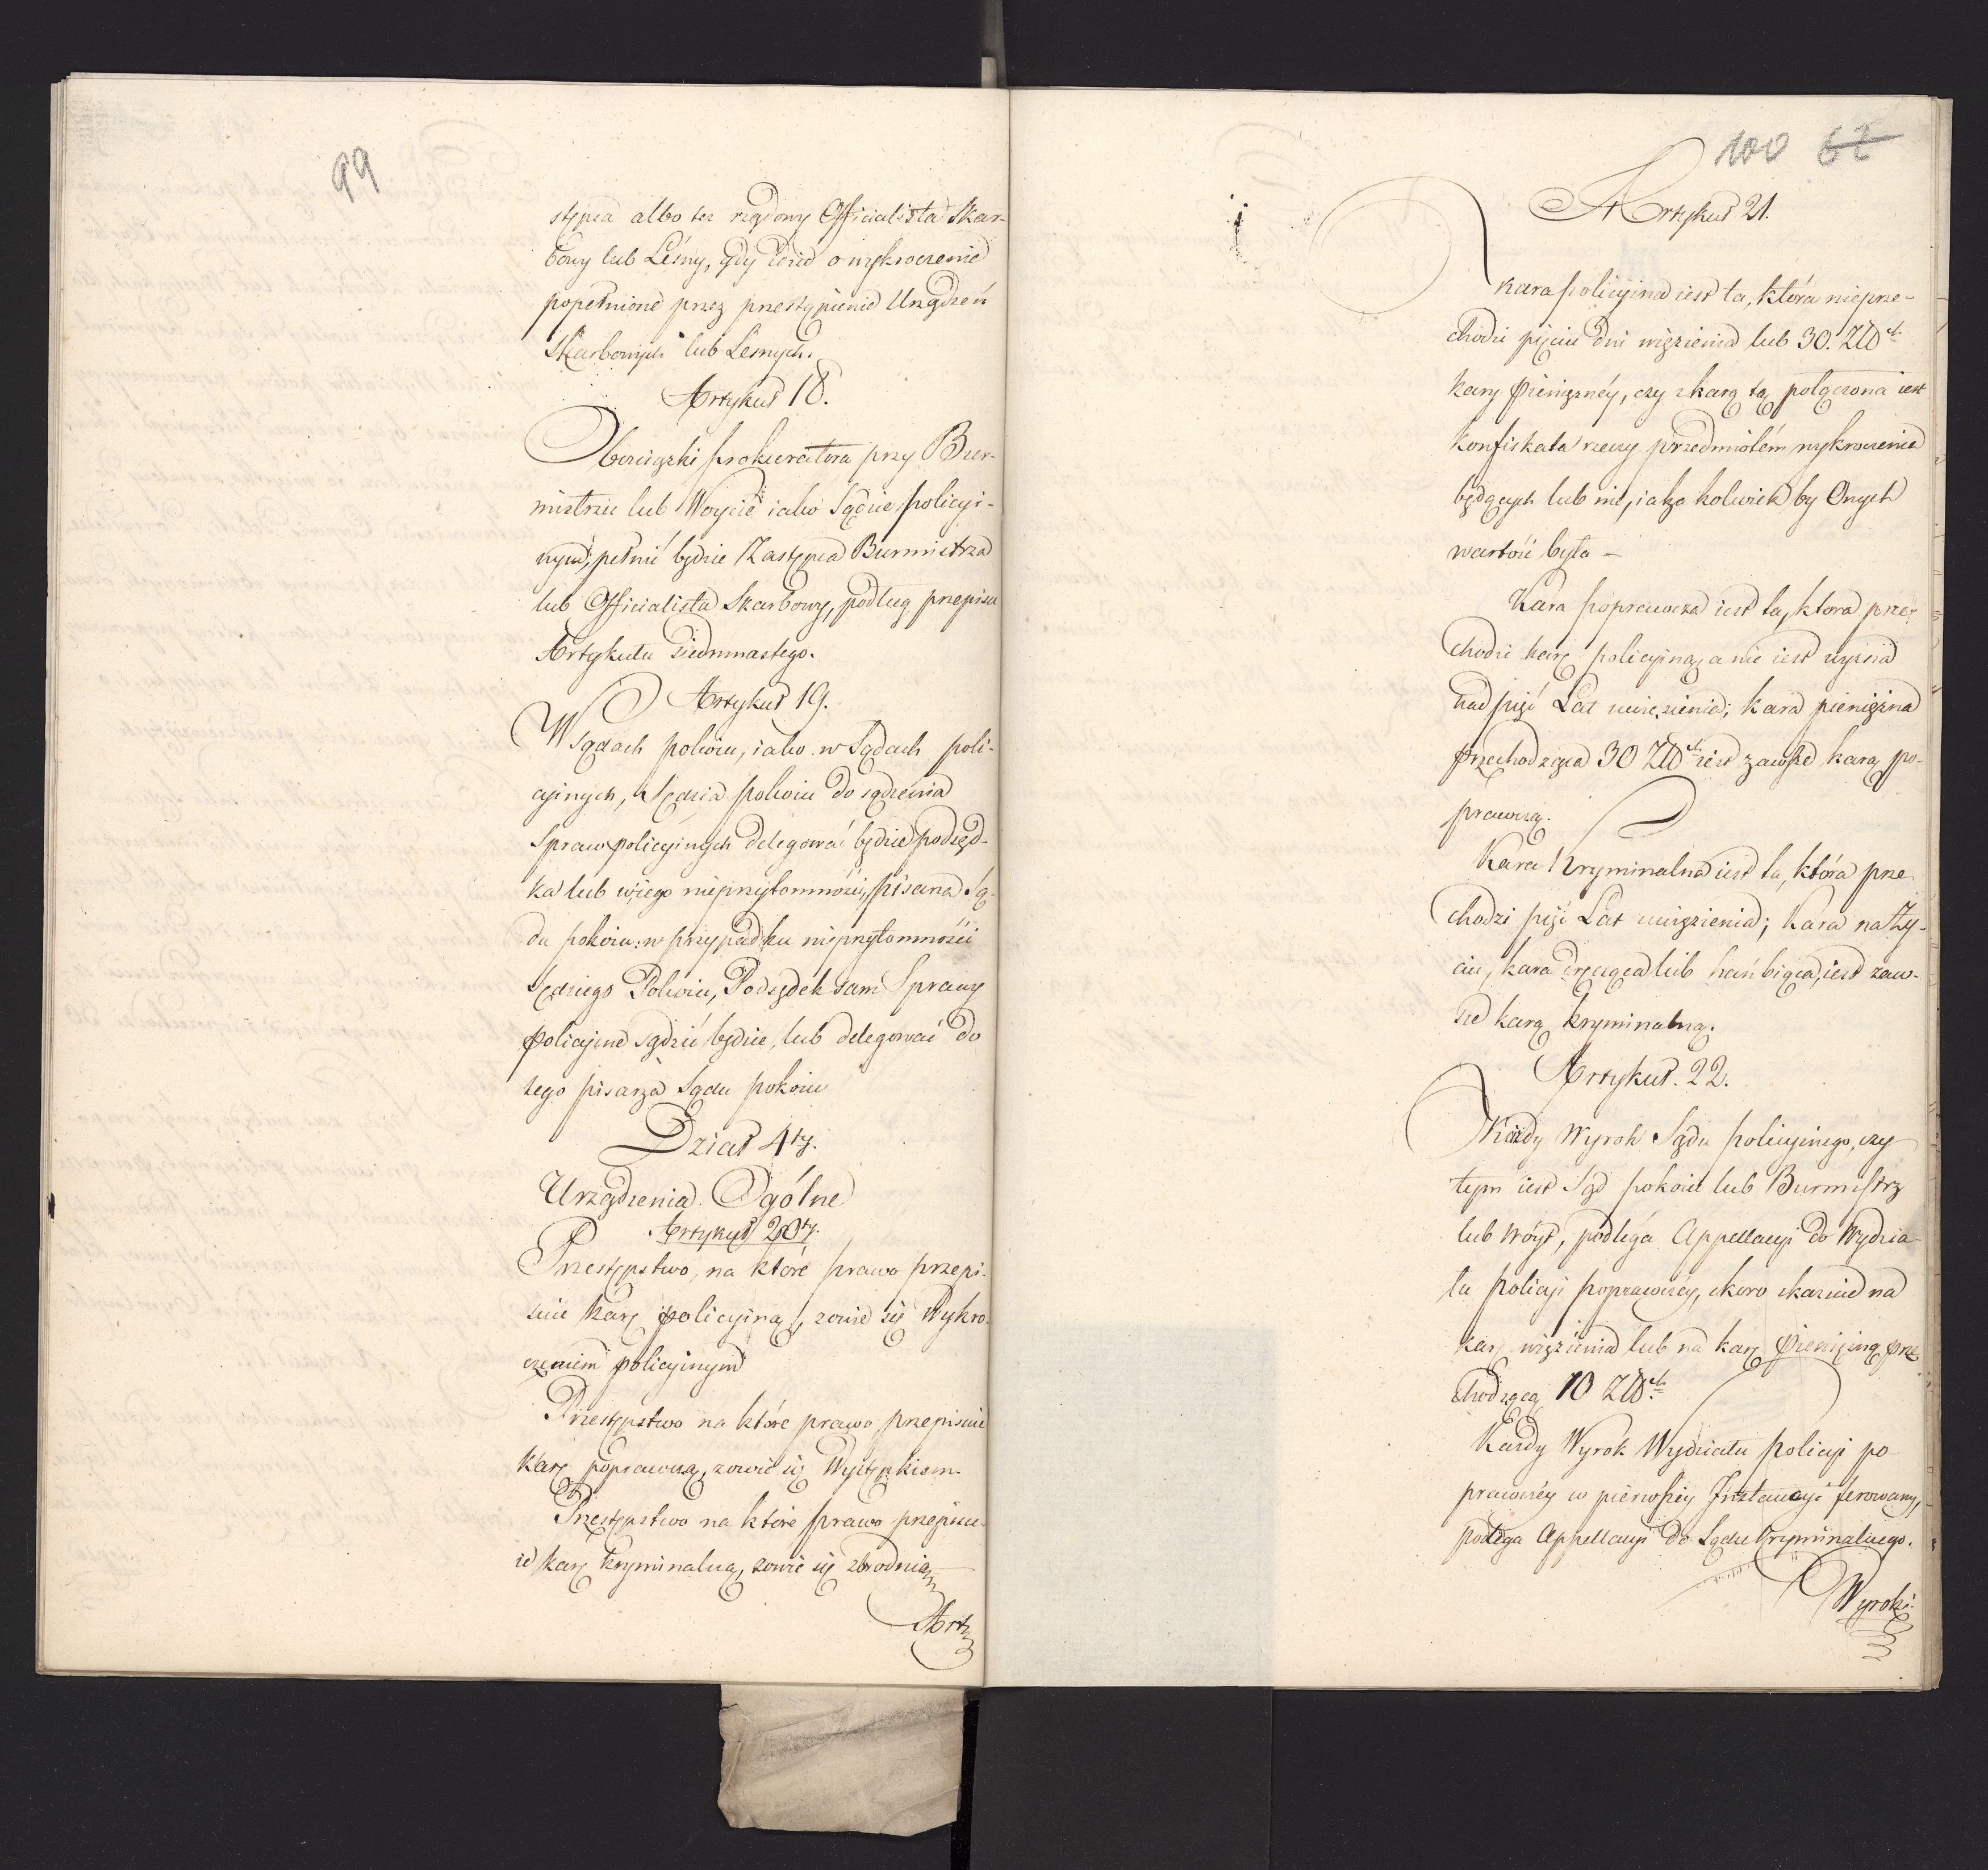 99
stępca albo tez rządowy Officialista Skar-
bowy lub Leśny, gdy idzie o wykroczenie
popełnione przez przestąpienie Urządzeń
Skarbowych lub Lesnych.
Artykuł 18.
Obowiązki prokuratora przy Bur-
mistrzu lub Woycie iako Sądzie policyi-
nym, pełnić będzie Zastępca Burmistrza
lub Officialista Skarbowy, podług przepisu
Artykułu Siedmnastego.
Artykuł 19.
W Sądach pokoiu, iako w Sądach poli-
cyinych, Sędzia pokoiu do sądzenia
Spraw policyinych delegować będzie podsęd-
ka lub w iego nieprzytomności, pisarza Są-
du pokoiu: w przypadku nieprzytomności
Sędziego Pokoiu, Podsędek sam Sprawy
policyine sądzić będzie, lub delegować do
tego pisarza Sądu pokoiu
Dział 4ty.
Urządzenia Ogólne
Artykuł 20ty.
Przestępstwo, na które prawo przepi-
suie karę policyiną, zowie się Wykro-
czeniem policyinym
Przestępstwo na które prawo przepisuie
karę poprawczą, zowie się Występkiem.
Przestępstwo na które prawo przepisu-
ie karę kryminalną, zowie się zbrodnią
Arty
100 62
Artykuł 21.
Kara policyina iest ta, która nieprze-
chodzi pięciu dni więzienia lub 30. Złł
kary pieniężnéy, czy z karą tą połączona iest
konfiskata rzeczy przedmiotem wykroczenia
będących lub nie, iaka kolwiek by Onych
wartość była –
Kara poprawcza iest ta, ktora prze-
chodzi karę policyiną, a nie iest wyższa
nad pięć Lat uwięzienia; kara pieniężna
przechodząca 30 Złł iest zawsze karą po-
prawczą.
Kara Kryminalna iest ta, która prze
chodzi pięć Lat uwięzienia; Kara na Ży-
ciu, kara dręcząca lub hańbiąca, iest zaw-
sze karą kryminalną.
Artykuł. 22.
Każdy Wyrok Sądu policyinego, czy
tym iest Sąd pokoiu lub Burmistrz
lub Wóyt, podléga Appellacyi do Wydzia-
łu policyi poprawczéy, skoro skazuie na
karę więzienia lub na karę pieniężną prze
chodzącą 10 Złł.
Każdy Wyrok Wydziału policyi po-
prawczéy w pierwszéy Instancyi ferowany,
podlega Appellacyi do Sądu Kryminalnego.
Wyroki